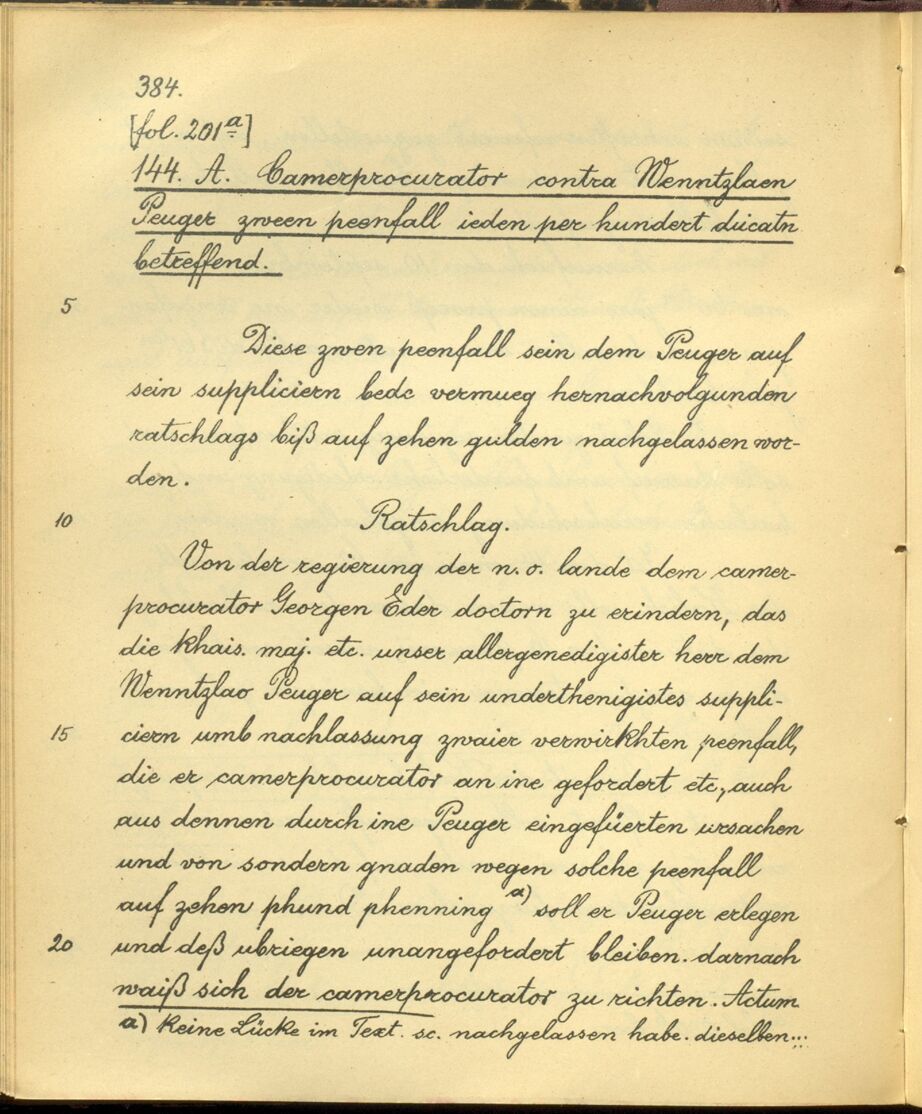 384.
[fol. 201a]
144. A. Camerprocurator contra Wenntzlaen
Peuger zween peenfall ieden per hundert ducatn
betreffend.
5
Diese zwen peenfall sein dem Peuger auf
sein suppliciern bede vermueg hernachvolgunden
ratschlags biß auf zehen gulden nachgelassen wor-
den.
10 Ratschlag.
Von der regierung der n. o. lande dem camer-
procurator Georgen Eder doctorn zu erindern, das
die khais. maj. etc. unser allergenedigister herr dem
Wenntzlao Peuger auf sein underthenigistes suppli-
15 ciern umb nachlassung zwaier verwirkhten peenfall,
die er camerprocurator an ine gefordert etc., auch
aus dennen durch ine Peuger eingefüerten ursachen
und von sondern gnaden wegen solche peenfall
auf zehen phund phenning a) soll er Peuger erlegen
20 und deß ubriegen unangefordert bleiben. darnach
waiß sich der camerprocurator zu richten. Actum
a) Keine Lücke im Text. sc. nachgelassen habe. dieselben...